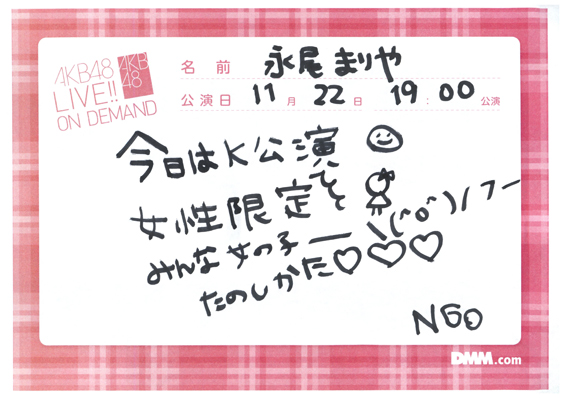 AKB48
LIVE!!
ON DEMAND
AKB
48
名前 永尾まりや
公演日 11月22日 19:00公演
今日はK公演
女性限定〜
みんな女の子ー \(^o^)/フー
たのしかた♡♡♡
DMM.com